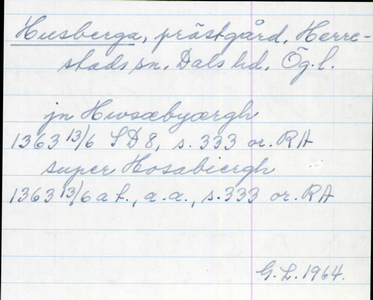 Husberga, prästgård, Herre-
stads sn. Dals hd. Ög. l.
jn Hwsæbyærgh
1363 13/6 SD 8, s. 333 or. RA
super Hosabiergh
1363 13/6 a t., a. a., s. 333 or. RA
G. L. 1964.